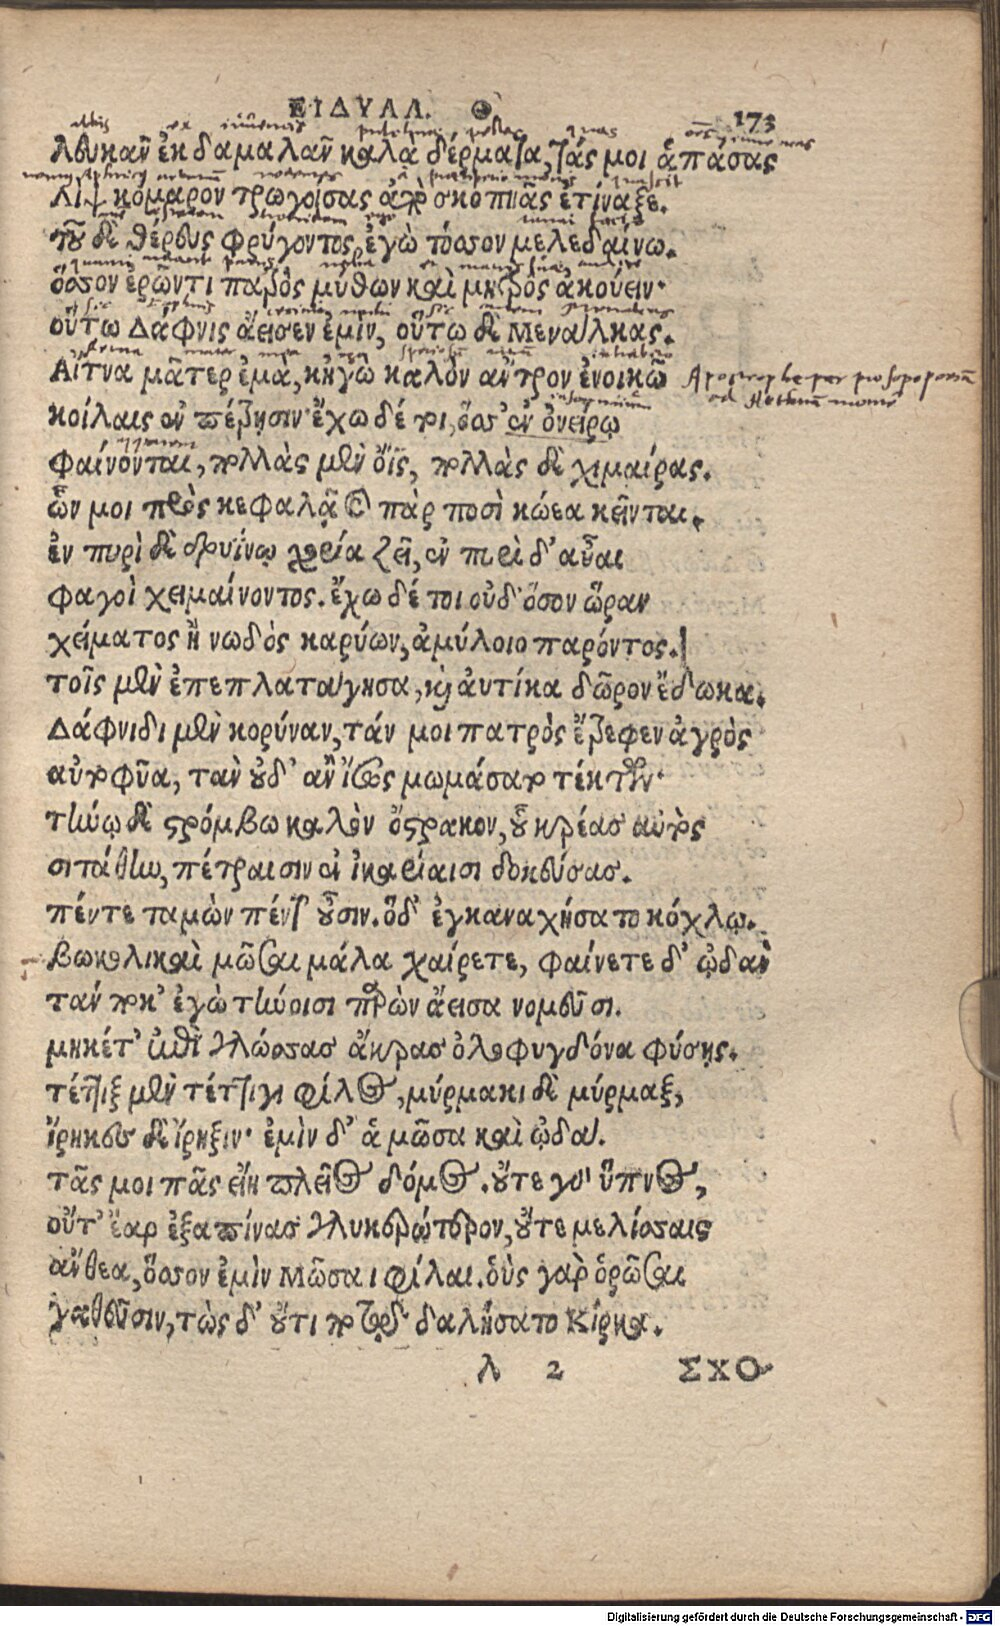 ΕΙΔΥΛΛ. Θ. 173
Λευκᾶν ἐκ δαμαλᾶν καλὰ δέρματα, τάς μοι ἁπάσας
Λὶψ κόμαρον τρωγοίσας ἀπὸ σκοπιᾶς ἐτίναξε.
τοῦ δὲ θέρευς φρύγοντος, ἐγὼ τόσσον μελεδαίνω.
ὅσσον ἐρῶντι πατρὸς μύθων καὶ μητρὸς ἀκούειν·
οὕτω Δάφνις ἄεισεν ἐμίν, οὕτω δὲ Μενάλκας.
Αἴτνα μᾶτερ ἐμὰ, κἠγὼ καλὸν ἄντρον ἐνοικῶ
Apostrophe per prosopopoeiam
ad Aetnam
κοίλαις ἐν πέτρῃσιν· ἔχω δέ τοι, ὅσσ' ἐν ὀνείρῳ
φαίνονται, πολλὰς μὲν ὄϊς, πολλὰς δὲ χιμαίρας.
ὧν μοι πρὸς κεφαλᾷ καὶ πὰρ ποσὶ κώεα κεῖνται.
ἐν πυρὶ δὲ δρυΐνῳ χορία ζεῖ, ἐν πυρὶ δ' αὖαι
φαγοὶ χειμαίνοντος. ἔχω δέ τοι οὐδ' ὅσον ὥραν
χείματος ἢ νωδὸς καρύων, ἀμύλοιο παρόντος.
τοῖς μὲν ἐπεπλατάγησα, καὶ αὐτίκα δῶρον ἔδωκα.
Δάφνιδι μὲν κορύναν, τάν μοι πατρὸς ἔτρεφεν ἀγρὸς
αὐτοφυᾶ, τὰν οὐδ' ἂν ἴσως μωμάσατο τέκτων·
τήνῳ δὲ στρόμβω καλὸν ὄστρακον, οὗ κρέας αὐτὸς
σιτάθην, πέτραισιν ἐν ἰκαρίαισι δοκεύσας.
πέντε ταμὼν πέντ' οὖσιν. ὅδ' ἐγκαναχήσατο κόχλῳ.
βωκολικαὶ μῶσαι μάλα χαίρετε, φαίνετε δ' ᾠδὰν
τάν ποκ' ἐγὼ τήνοισι παρὼν ἄεισα νομεῦσι.
μηκέτ' ἐπὶ γλώσσας ἄκρας ὀλοφυγδόνα φύσῃς.
τέττιξ μὲν τέττιγι φίλος, μύρμακι δὲ μύρμαξ,
ἴρηκες δὲ ἴρηξιν· ἐμὶν δ' ἁ μῶσα καὶ ᾠδά.
τᾶς μοι πᾶς εἴη πλεῖος δόμος. οὔτε γὰρ ὕπνος,
οὔτ' ἔαρ ἐξαπίνας γλυκερώτερον, οὔτε μελίσσαις
ἄνθεα, ὅσσον ἐμὶν Μῶσαι φίλαι. οὓς γὰρ ὁρῶσαι
γαθεῦσιν, τὼς δ' οὔτι ποτῷ δαλήσατο Κίρκα.
λ 2 ΣΧΟ
Digitalisierung gefördert durch die Deutsche Forschungsgemeinschaft - DFG